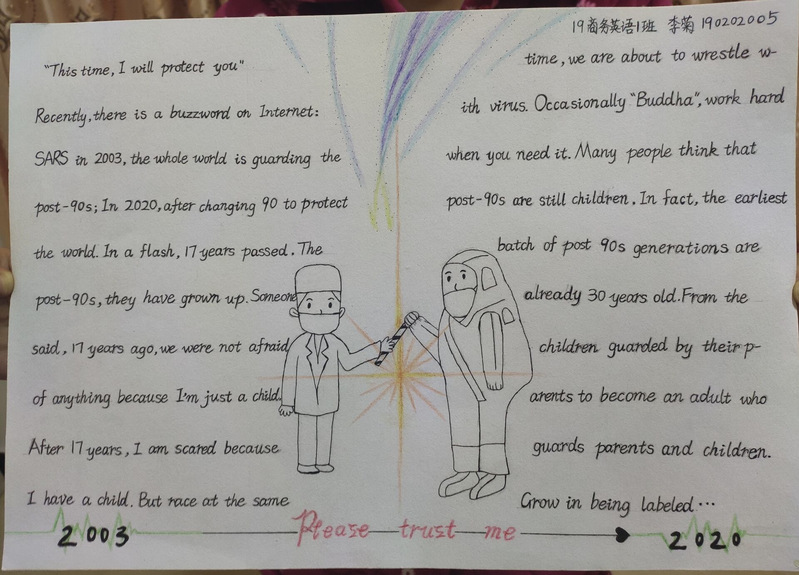 19商务英语1班 李菊 190202005
"This time, I will protect you"
Recently, there is a buzzword on Internet:
SARS in 2003, the whole world is guarding the
post-90s; In 2020, after changing 90 to protect
the world. In a flash, 17 years passed. The
post-90s, they have grown up. Someone
said, 17 years ago, we were not afraid
of anything because I'm just a child.
After 17 years, I am scared because
I have a child. But race at the same
time, we are about to wrestle w-
ith virus. Occasionally "Buddha", work hard
when you need it. Many people think that
post-90s are still children. In fact, the earliest
batch of post 90s generations are
already 30 years old. From the
children guarded by their p-
arents to become an adult who
guards parents and children.
Grow in being labeled...
2003 Please trust me 2020